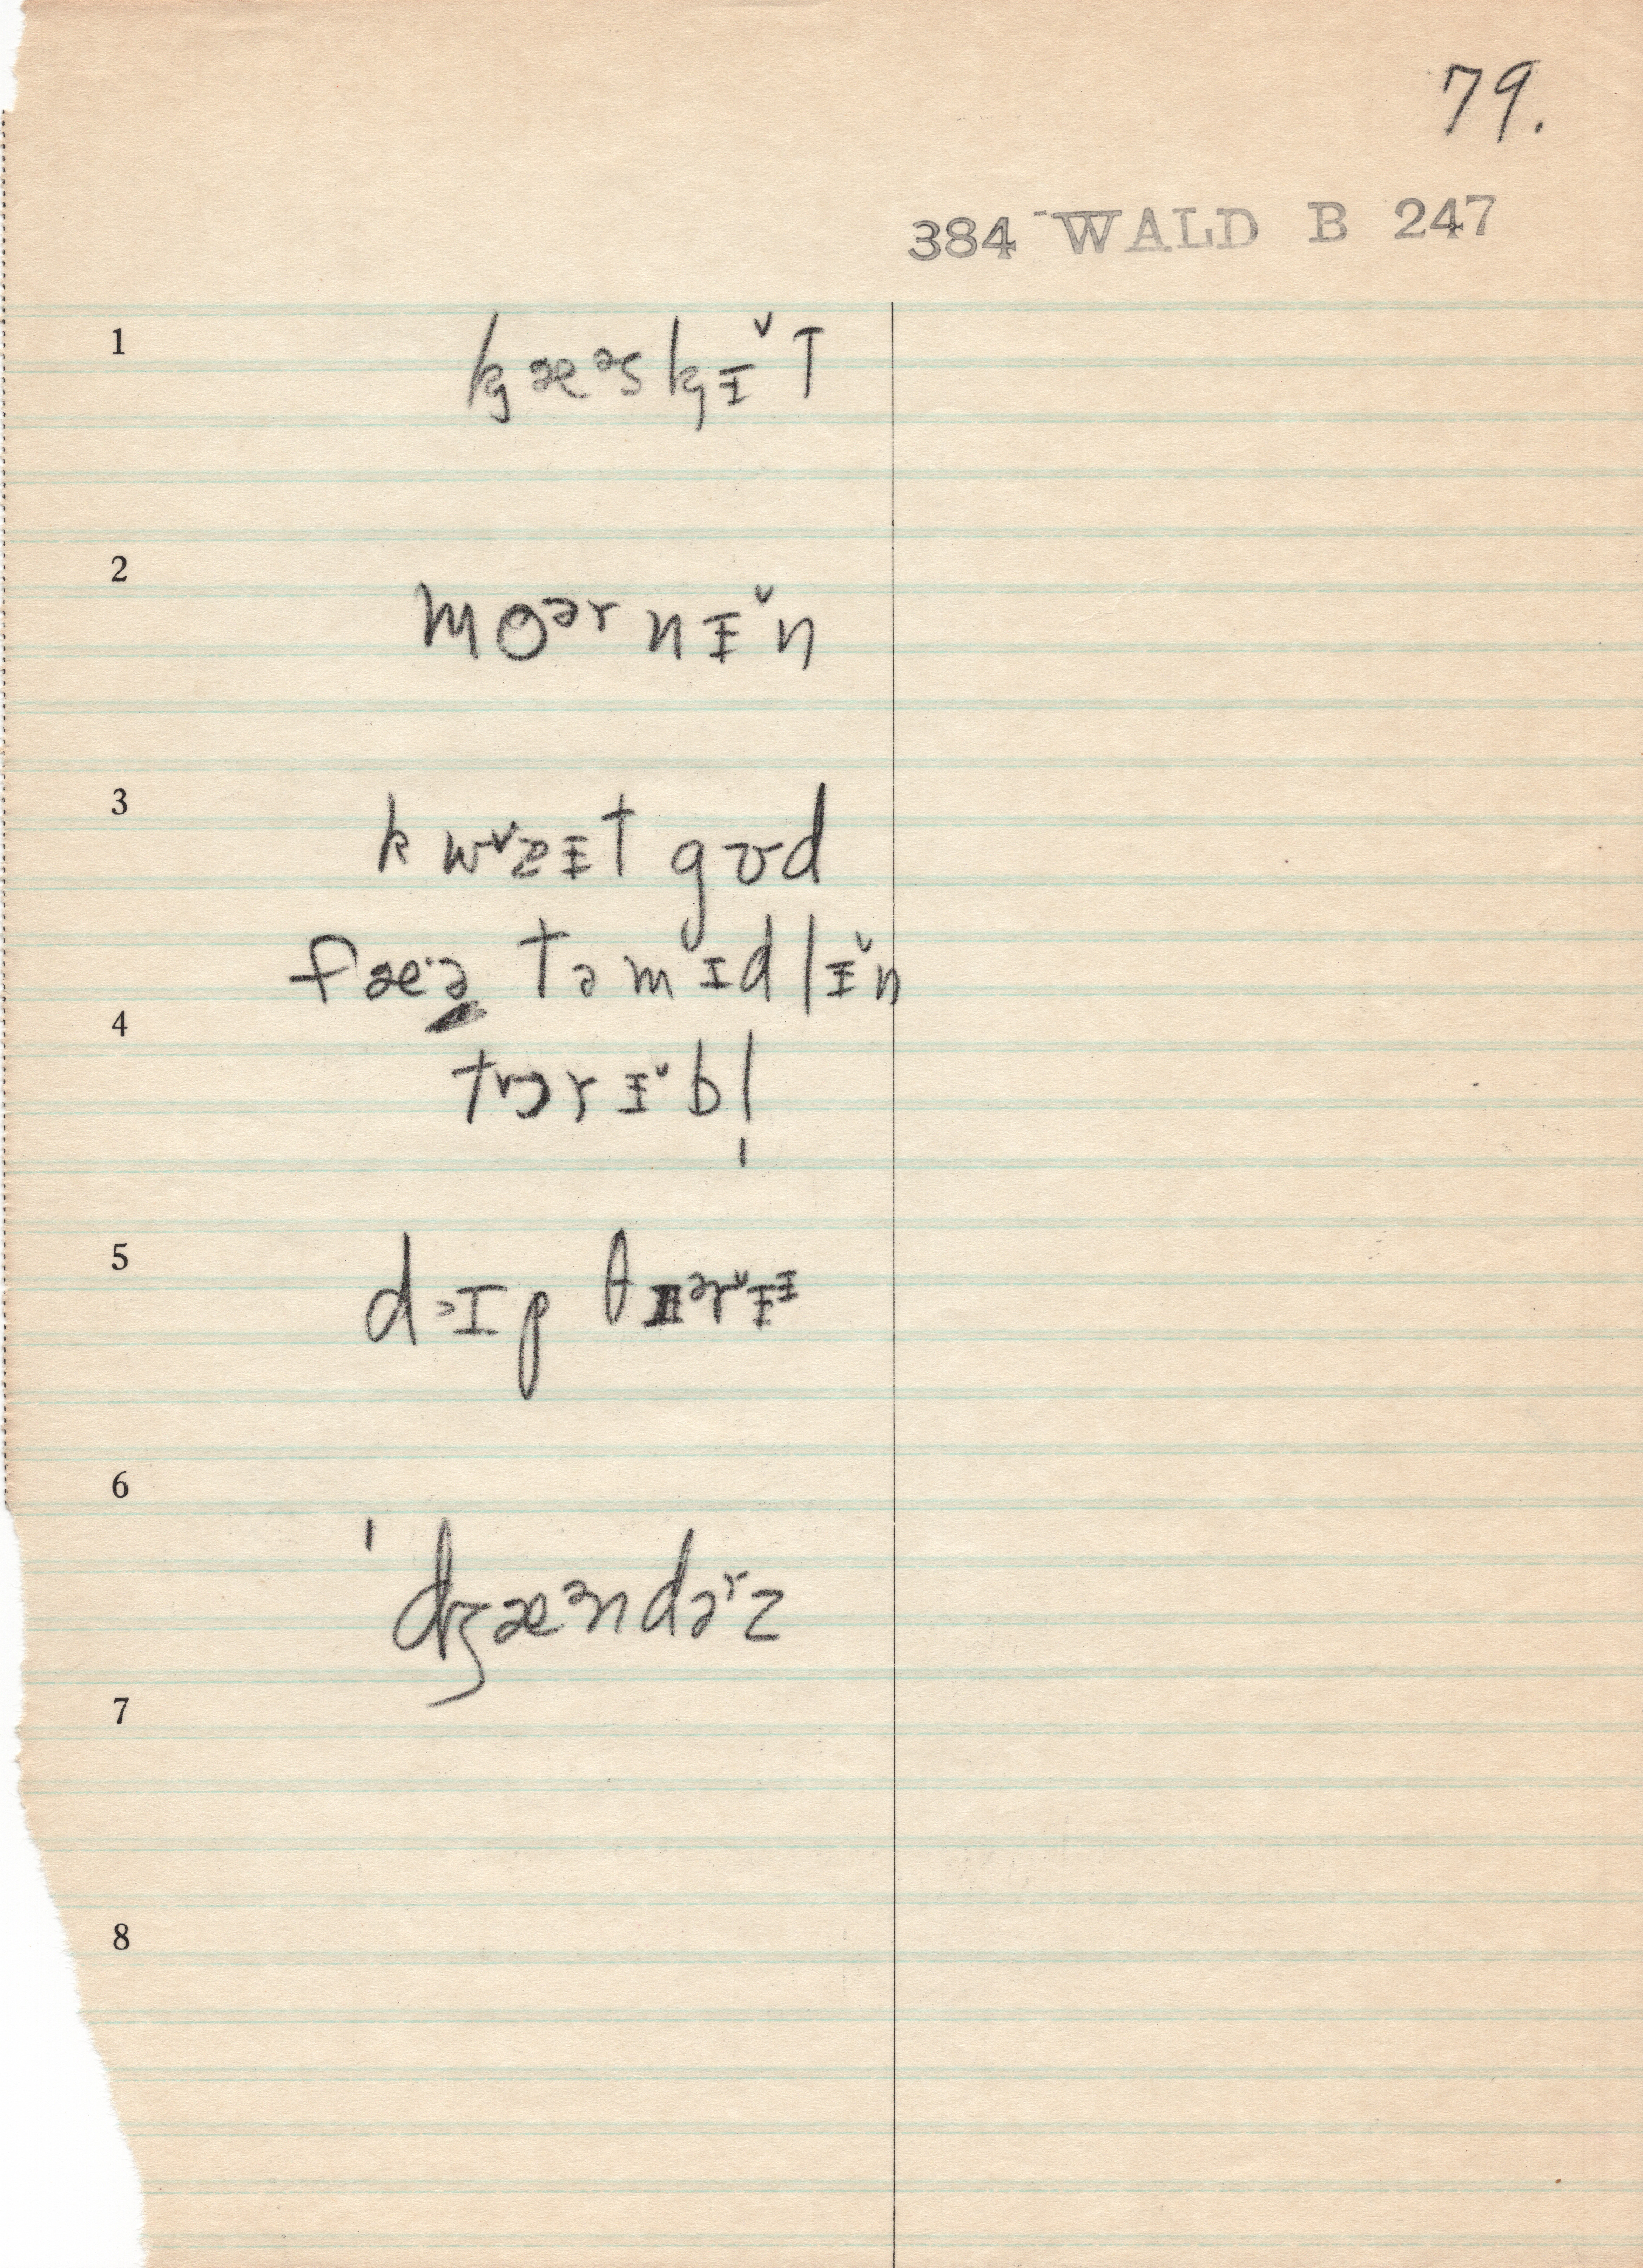 79.
384 WALD B 247
1 kɡæᵊskɡɪ̵̌T
2 moᵊʳnɪ̵̌n
3 kwᵛzɪ̵t gʊd
fæ·ə təmɪdlɪ̵̌n
4
tɔrɪ̵̌bl̩
5 d>ɪp θɪᵊr̆ɪ̵ᶤ
6
ˈdʒæᵊndəʳz
7
8